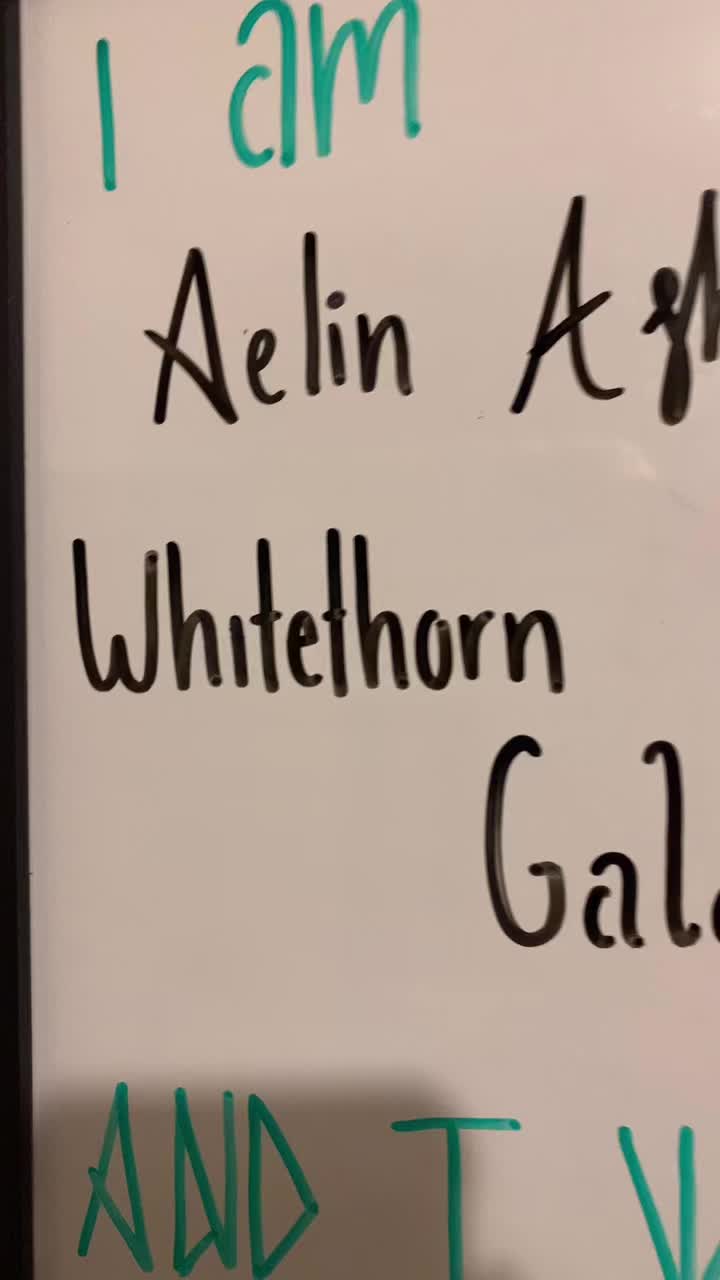 I am
Aelin
Whitethorn
AND I